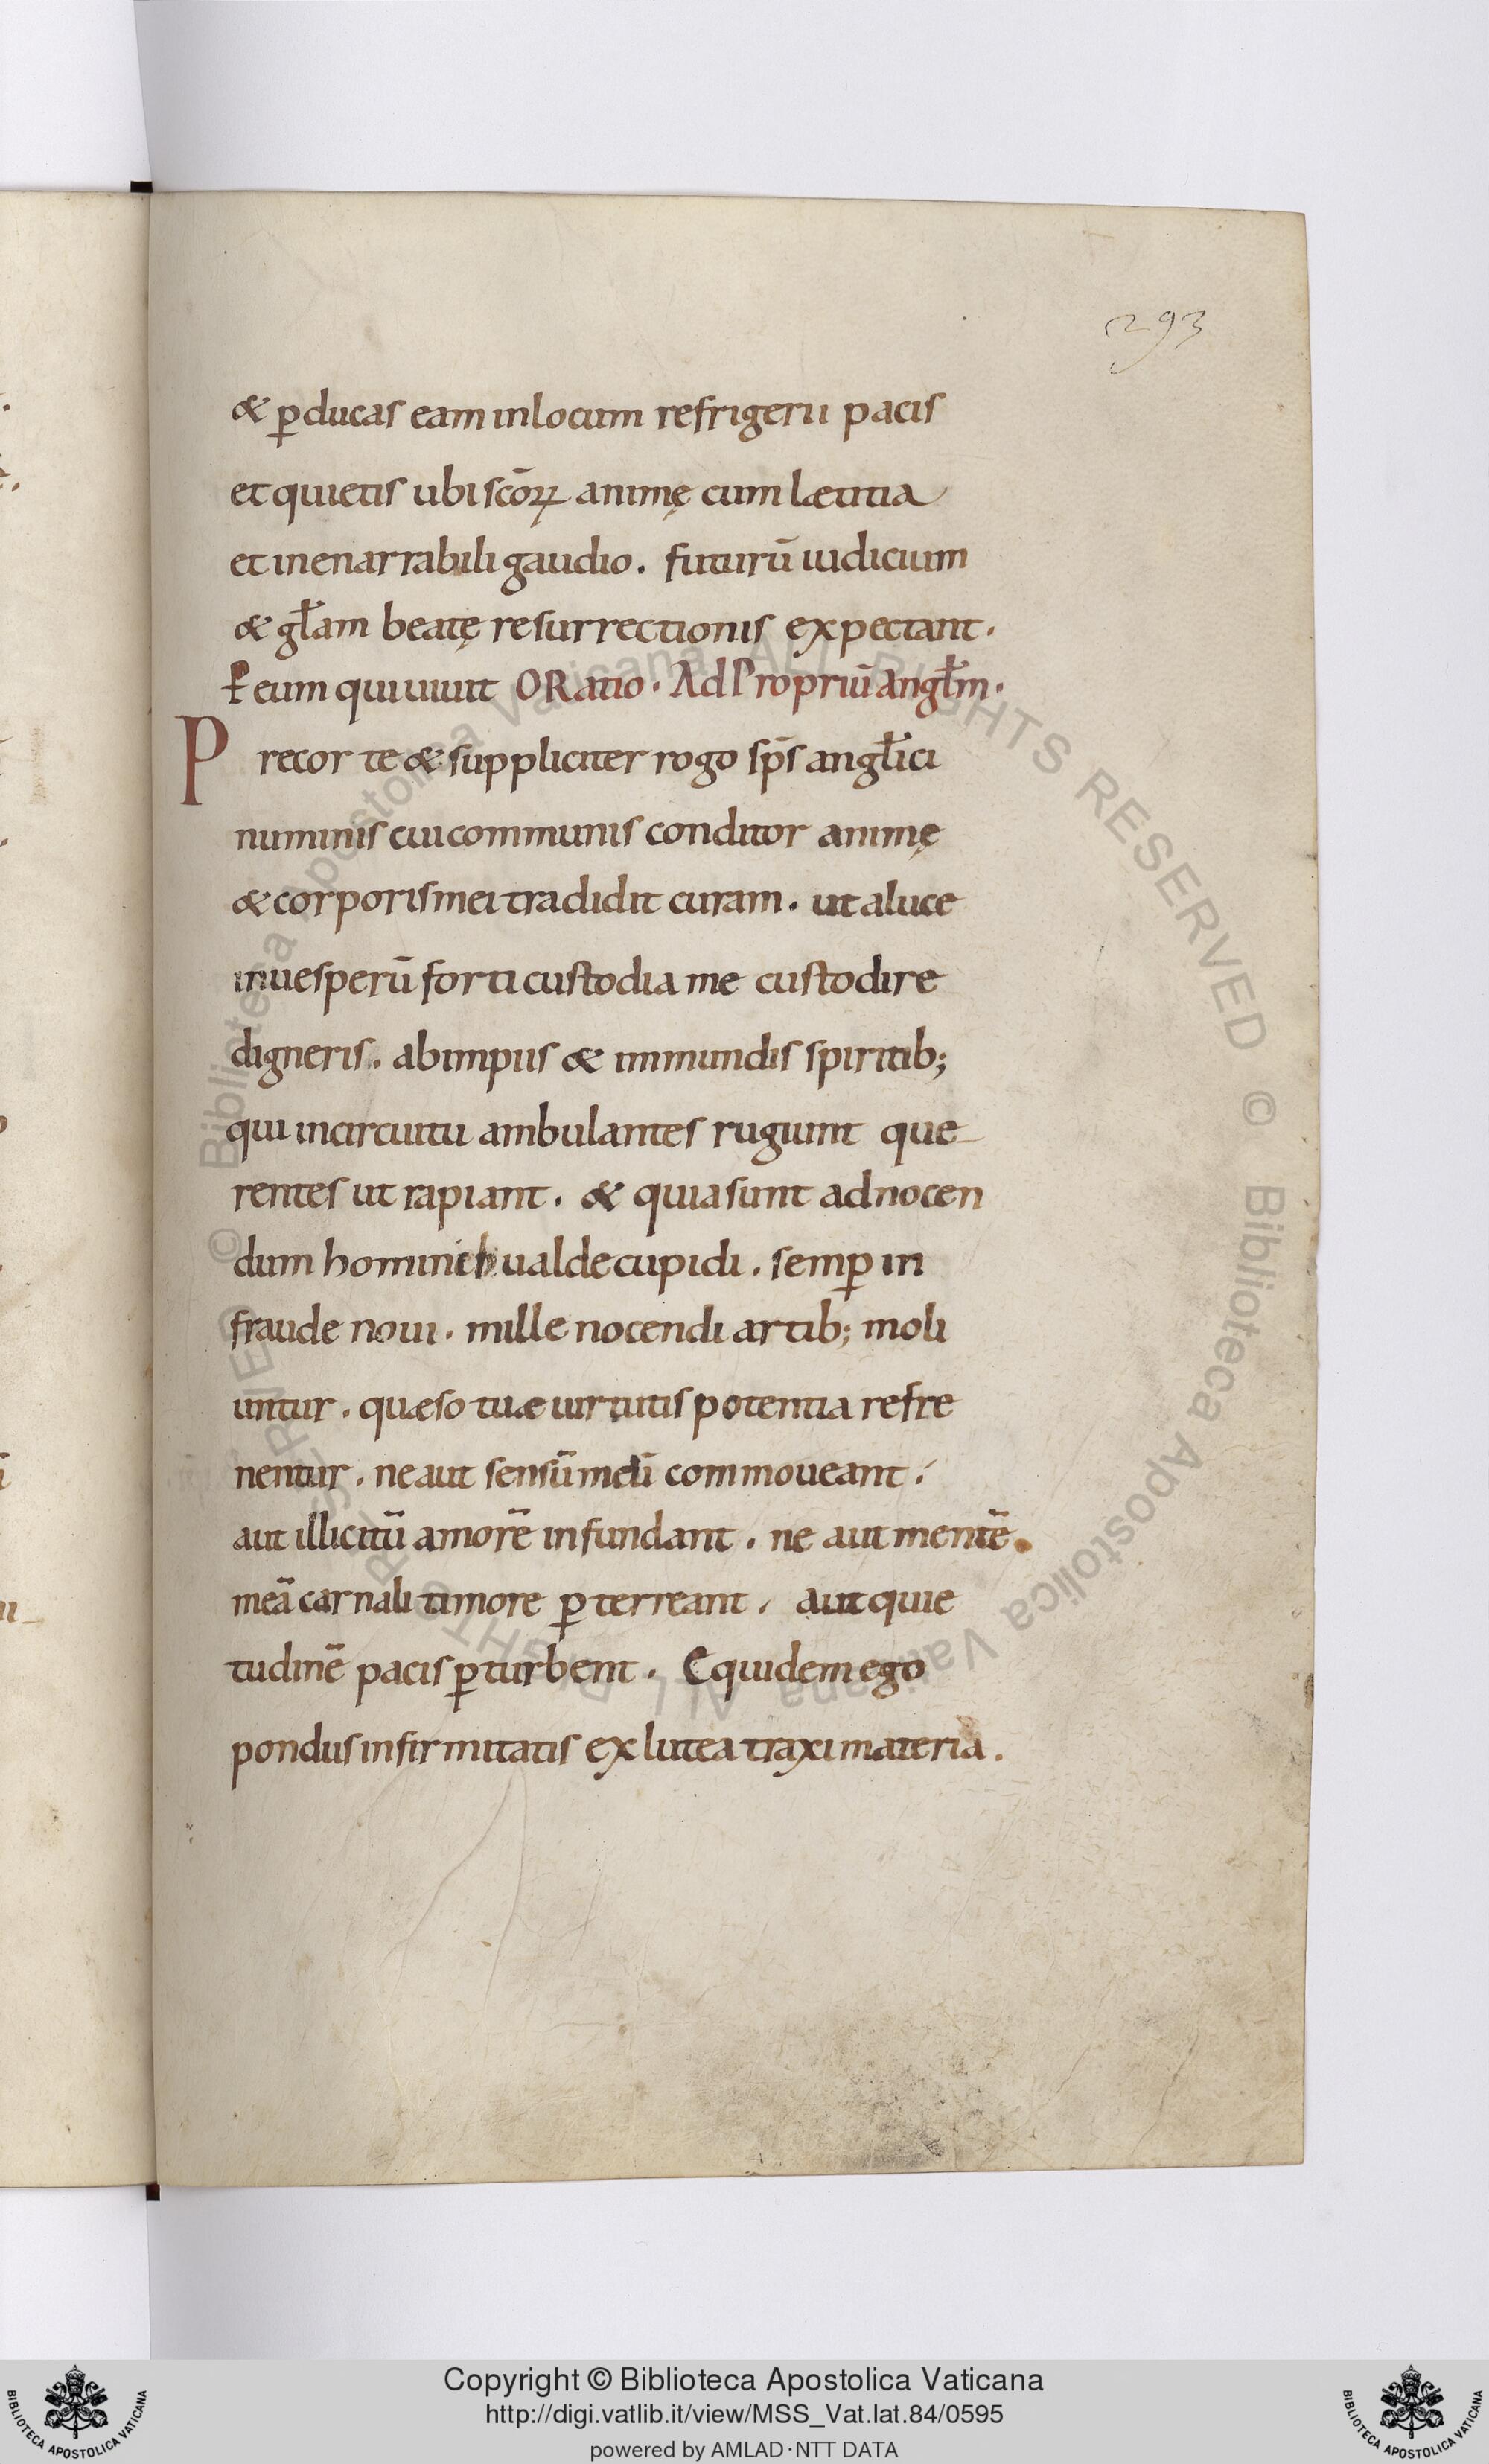 293
& ꝑducas eam in locum refrigerii pacis
et quietis ubi scōꝝ animę cum lætitia
et inenarrabili gaudio. futurū iudicium
& gl̄am beatę resurrectionis expectant.
P̄ eum qui uiuit ORatio. Ad Propriū Angl̄m.
Precor te & suppliciter rogo sp̄s angl̄ici
numinis cui communis conditor animę
& corporis mei tradidit curam. ut a luce
in uesperū forti custodia me custodire
digneris. ab impiis & immundis spiritib;
qui in circuitu ambulantes rugiunt que
rentes ut rapiant. & quia sunt ad nocen
dum ualde cupidi. semꝑ in
fraude noui. mille nocendi artib; moli
untur. quæso tuæ uirtutis potentia refre
nentur. ne aut sensū meū commoueant.
aut illicitū amorē infundant. ne aut mentē
meā carnali timore ꝑterreant. aut quie
tudinē pacis ꝑturbent. Equidem ego
pondus infirmitatis ex lutea traxi materia.
© Biblioteca Apostolica Vaticana ALL RIGHTS RESERVED
© Biblioteca Apostolica Vaticana ALL RIGHTS RESERVED
Copyright © Biblioteca Apostolica Vaticana
http://digi.vatlib.it/view/MSS_Vat.lat.84/0595
powered by AMLAD·NTT DATA
BIBLIOTECA APOSTOLICA VATICANA
BIBLIOTECA APOSTOLICA VATICANA